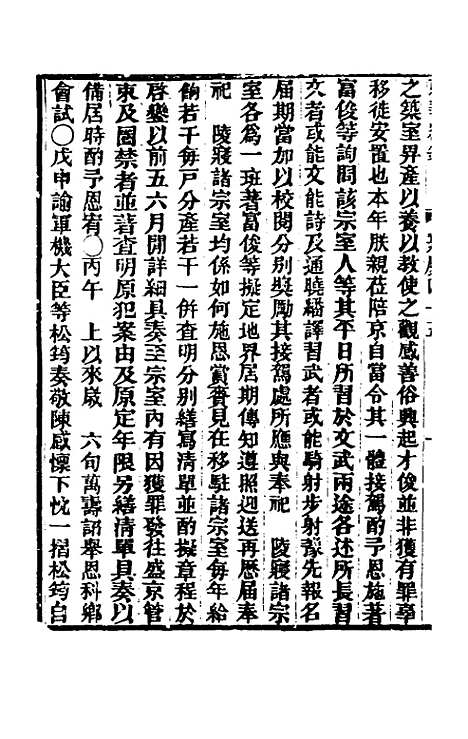 之築室畀產以養以教使之觀感善俗興起才俊並非獲有罪辜
移徙安置也本年朕親莅陪京自當令其一體接駕酌予恩施著
富俊等詢問該宗室人等其平日所習於文武兩途各述所長習
文者或能文能詩及通曉繙譯習武者或能騎射步射豫先報名
屆期當加以校閱分別獎勵其接駕處所應與奉祀　陵寢諸宗
室各爲一班著富俊等擬定地界居期傳知遵照迎送再歷屆奉
祀　陵寢諸宗室均係如何施恩賞賚見在移駐諸宗室每年給
餉若干每戶分產若干一併查明分別繕寫清單並酌擬章程於
啓鑾以前五六月閒詳細具奏至宗室內有因獲罪發往盛京管
束及圈禁者並著查明原犯案由及原定年限另繕清單具奏以
備屆時酌予恩宥〇丙午　上以來歲　六旬萬壽詔舉恩科鄉
會試〇戊申諭軍機大臣等松筠奏敬陳感懷下忱一摺松筠自